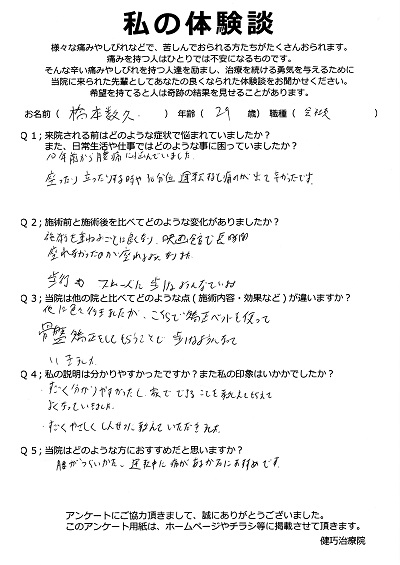 私の体験談
様々な痛みやしびれなどで、苦しんでおられる方たちがたくさんおられます。
痛みを持つ人はひとりでは不安になるものです。
そんな辛い痛みやしびれを持つ人達を励まし、治療を続ける勇気を与えるために
当院に来られた先輩としてあなたの良くなられた体験談をお聞かせください。
希望を持てると人は奇跡の結果を見せることがあります。
お名前（ 橋本数久 ）年齢（ 29 歳）職種（ 会社員 ）
Q1；来院される前はどのような症状で悩まれていましたか？
また、日常生活や仕事ではどのような事に困っていましたか？
10年前から腰痛に悩んでいました。
座ったり立ったりする時や10分位運転すると痛みが出て辛かったです。
Q2；施術前と施術後を比べてどのような変化がありましたか？
施術を重ねるごとに良くなり、映画を含む長時間
座れなかったのが座れるように
歩行もスムーズに歩けるように
Q3；当院は他の院と比べてどのような点(施術内容・効果など)が違いますか？
他にも色々行きましたが、こちらで矯正ベルトを使って
骨盤矯正をしてもらうことで歩けるようになって
いきました。
Q4；私の説明は分かりやすかったですか？また私の印象はいかかでしたか？
・すごく分かりやすかったし、家でできることを教えてもらえて
よくなっていきました。
・すごくやさしく しんせつに教えていただきました。
Q5；当院はどのような方におすすめだと思いますか？
腰がつらいかた、運転中に痛みがある方におすすめです。
アンケートにご協力頂きまして、誠にありがとうございました。
このアンケート用紙は、ホームページやチラシ等に掲載させて頂きます。
健巧治療院